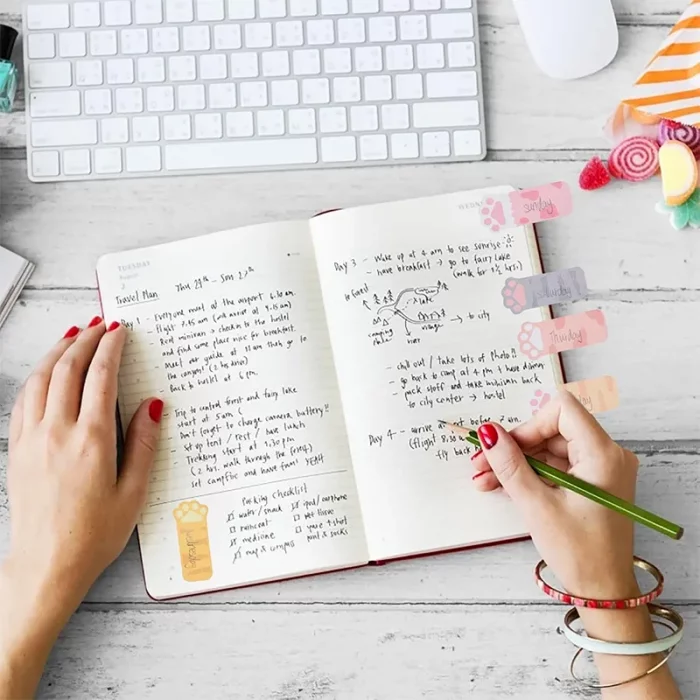 TUESDAY
Travel Plan Thu 24th - Sun 27th
Day 1 - Everyone meet at the airport 6.30 am
- flight 7.15 am (will arrive at 9.15 am)
- Rent minivan > checkin to the hostel
and find some place nice for breakfast.
- Meet our guide at 11 am then go to
the canyon! (2 hrs drive)
- Back to hostel at 6 pm
- Trip to central forest and fairy lake
start at 5 am
- Don't forget to charge camera battery!!
- set up tent / rest / have lunch
- Trekking start at 1.30 pm
(2 hrs. walk through the forest)
- set campfire and have fun! YEAH
Packing Checklist
water / snack
raincoat
medicine
map & compass
ipod / earphone
wet tissue
spare t-shirt
pant & socks
wednesday
Day 3 - Wake up at 4 am to see sunrise
- have breakfast → go to fairy lake
(walk for 1½ hrs)
to forest
lake
camping
village
→ to city
- chill out / take lots of photo!!
- go back to camp at 4 pm & have dinner
- pack stuff and take minivan back
to city center → hostel
Day 4 - arrive at before 7 am
(flight 8.30
fly back
sunday
Thursday